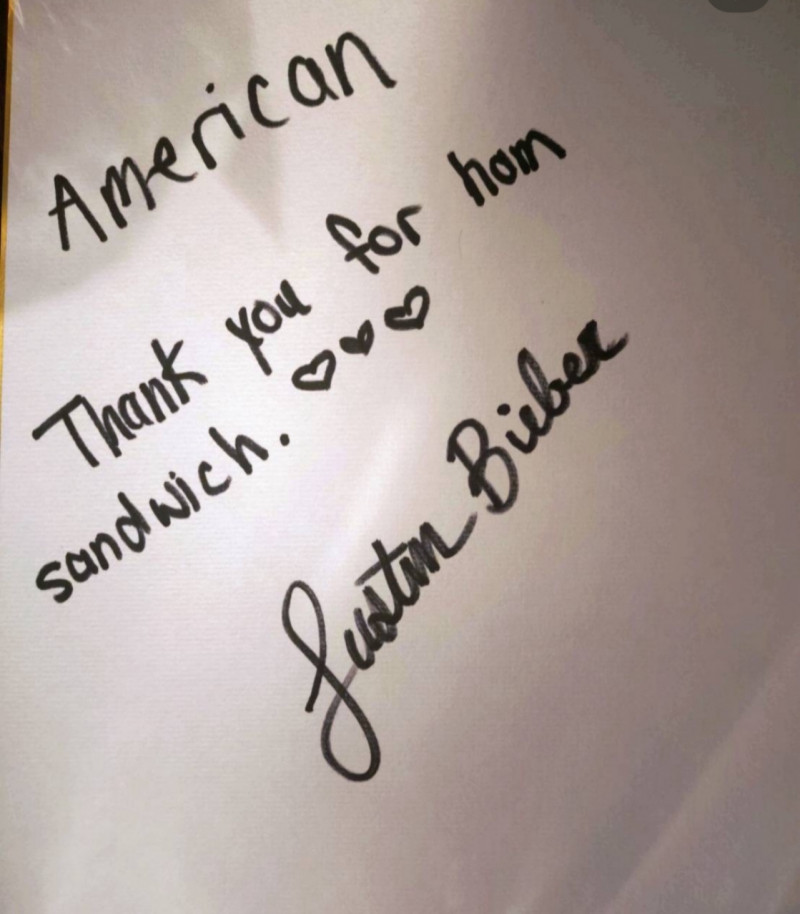 American
Thank you for hom
♡♥♡
sandwich.
Justin Bieber